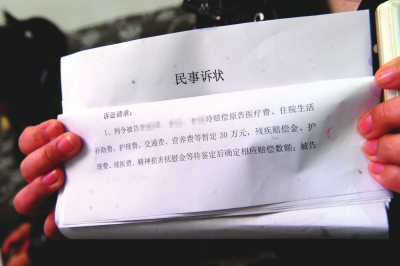 民事诉状
诉讼请求：
1、判令被告 玲赔偿原告医疗费、住院生活
补助费、护理费、交通费、营养费等暂定 30 万元，残疾赔偿金、护
理费、续医费、精神损害抚慰金等待鉴定后确定相应赔偿数额；被告